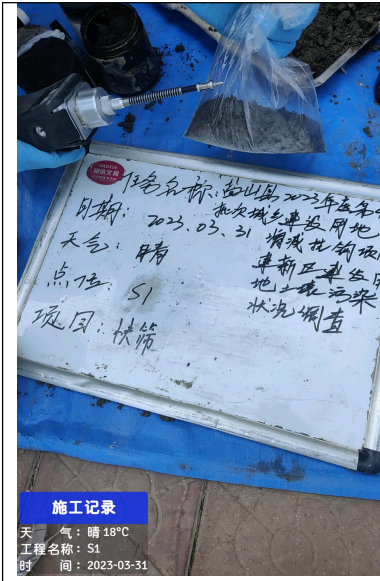 任务名称：盐山县2023年度第
批次城乡建设用地
日期：2023.03.31 增减挂钩项
天气：晴 建新区
地土壤污染
点位 S1 状况调查
项目：快筛
施工记录
天 气：晴 18℃
工程名称：S1
时 间：2023-03-31